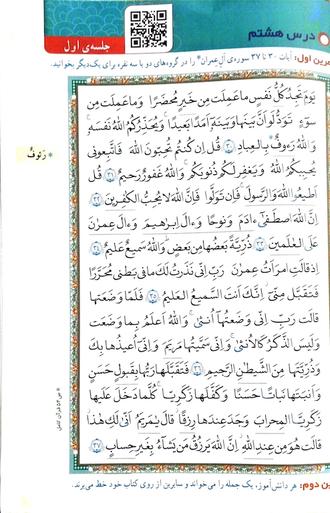 درس هشتم
جلسه‌ی اول
تمرین اول: آیات ۳۰ تا ۳۷ سوره‌ی آل عمران* را در گروه‌های دو یا سه نفره برای یک‌دیگر بخوانید.
یَومَ تَجِدُ کُلُّ نَفسٍ ما عَمِلَت مِن خَیرٍ مُحضَرًا وَ ما عَمِلَت مِن
سوءٍ تَوَدُّ لَو اَنَّ بَینَها وَ بَینَهو اَمَدًا بَعیدًا وَ یُحَذِّرُکُمُ اللّٰهُ نَفسَهو
وَ اللّٰهُ رَءوفٌ بِالعِبادِ ﴿۳۰﴾ قُل اِن کُنتُم تُحِبّونَ اللّٰهَ فَاتَّبِعونی
یُحبِبکُمُ اللّٰهُ وَ یَغفِر لَکُم ذُنوبَکُم وَ اللّٰهُ غَفورٌ رَحیمٌ ﴿۳۱﴾ قُل
اَطیعُوا اللّٰهَ وَ الرَّسولَ فَاِن تَوَلَّوا فَاِنَّ اللّٰهَ لا یُحِبُّ الکٰفِرینَ ﴿۳۲﴾
اِنَّ اللّٰهَ اصطَفیٰ ءادَمَ وَ نوحًا وَ ءالَ اِبرٰهیمَ وَ ءالَ عِمرٰنَ
عَلَی العٰلَمینَ ﴿۳۳﴾ ذُرِّیَّةً بَعضُها مِن بَعضٍ وَ اللّٰهُ سَمیعٌ عَلیمٌ ﴿۳۴﴾
اِذ قالَتِ امرَاَتُ عِمرٰنَ رَبِّ اِنّی نَذَرتُ لَکَ ما فی بَطنی مُحَرَّرًا
فَتَقَبَّل مِنّی اِنَّکَ اَنتَ السَّمیعُ العَلیمُ ﴿۳۵﴾ فَلَمّا وَضَعَتها
قالَت رَبِّ اِنّی وَضَعتُها اُنثیٰ وَ اللّٰهُ اَعلَمُ بِما وَضَعَت
وَ لَیسَ الذَّکَرُ کَالاُنثیٰ وَ اِنّی سَمَّیتُها مَریَمَ وَ اِنّی اُعیذُها بِکَ
وَ ذُرِّیَّتَها مِنَ الشَّیطٰنِ الرَّجیمِ ﴿۳۶﴾ فَتَقَبَّلَها رَبُّها بِقَبولٍ حَسَنٍ
وَ اَنبَتَها نَباتًا حَسَنًا وَ کَفَّلَها زَکَرِیّا کُلَّما دَخَلَ عَلَیها
زَکَرِیَّا المِحرابَ وَجَدَ عِندَها رِزقًا قالَ یٰمَریَمُ اَنّیٰ لَکِ هٰذا
قالَت هُوَ مِن عِندِ اللّٰهِ اِنَّ اللّٰهَ یَرزُقُ مَن یَشاءُ بِغَیرِ حِسابٍ ﴿۳۷﴾
* رَئوفٌ
* ص ۵۴ قرآن کامل
تمرین دوم: هر دانش‌آموز، یک جمله را می‌خواند و سایرین از روی کتاب خود خط می‌برند.